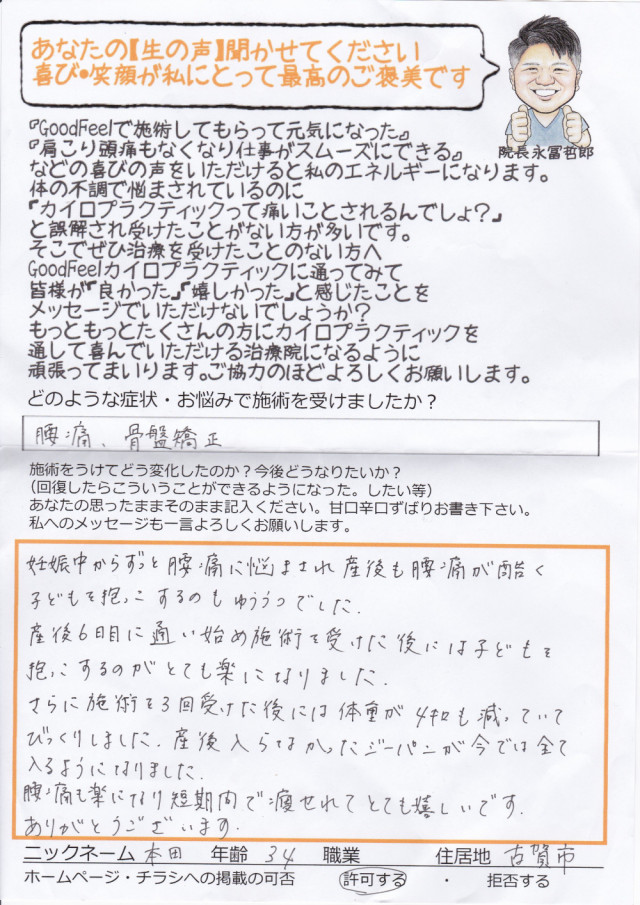 あなたの【生の声】聞かせてください
喜び・笑顔が私にとって最高のご褒美です
院長永冨哲郎
『GoodFeelで施術してもらって元気になった』
『肩こり頭痛もなくなり仕事がスムーズにできる』
などの喜びの声をいただけると私のエネルギーになります。
体の不調で悩まされているのに
「カイロプラクティックって痛いことされるんでしょ?」
と誤解され受けたことがない方が多いです。
そこでぜひ治療を受けたことのない方へ
GoodFeelカイロプラクティックに通ってみて
皆様が「良かった」「嬉しかった」と感じたことを
メッセージでいただけないでしょうか?
もっともっとたくさんの方にカイロプラクティックを
通して喜んでいただける治療院になるように
頑張ってまいります。ご協力のほどよろしくお願いします。
どのような症状・お悩みで施術を受けましたか?
腰痛、骨盤矯正
施術をうけてどう変化したのか?今後どうなりたいか?
(回復したらこういうことができるようになった。したい等)
あなたの思ったままそのまま記入ください。甘口辛口ずばりお書き下さい。
私へのメッセージも一言よろしくお願いします。
妊娠中からずっと腰痛に悩まされ産後も腰痛が酷く
子どもを抱っこするのもゆううつでした.
産後6日目に通い始め施術を受けた後には子どもを
抱っこするのがとても楽になりました.
さらに施術を3回受けた後には体重が4キロも減っていて
びっくりしました.産後入らなかったジーパンが今では全て
入るようになりました.
腰痛も楽になり短期間で痩せれてとても嬉しいです.
ありがとうございます.
ニックネーム 本田 年齢 34 職業 住居地 古賀市
ホームページ・チラシへの掲載の可否 許可する ・ 拒否する